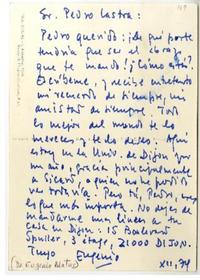 Sr. Pedro Lastra:
Pedro querido: ¿de qué parte
tendría que ser el abrazo
que te mando? ¿Cómo estás?
Escríbeme, y recibe entretanto
mi recuerdo de siempre, mi
amistad de siempre. Todo
lo mejor del mundo te lo
mereces y te lo deseo. Aquí
estoy en la Univ. de Dijon por
un año, gracias principalmente
a Cicero, a quien no he podido
ver todavía. Para ti, Pedro,
es que más importa. No dejes de
mandarme unas líneas a tu
casa en Dijon: 15 Boulevard
Spuller, 3 étage, 21000 DIJON.
Tuyo Eugenio
XII, 74